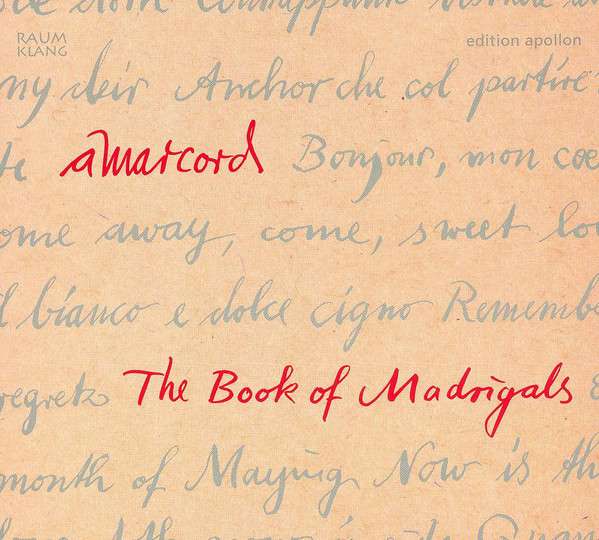 RAUM
KLANG
edition apollon
my deir Anchor che col partire
amarcord Bonjour, mon coe
ome away, come, sweet lo
l bianco e dolce cigno Rememb
regretz The Book of Madrigals
month of Maying Now is th